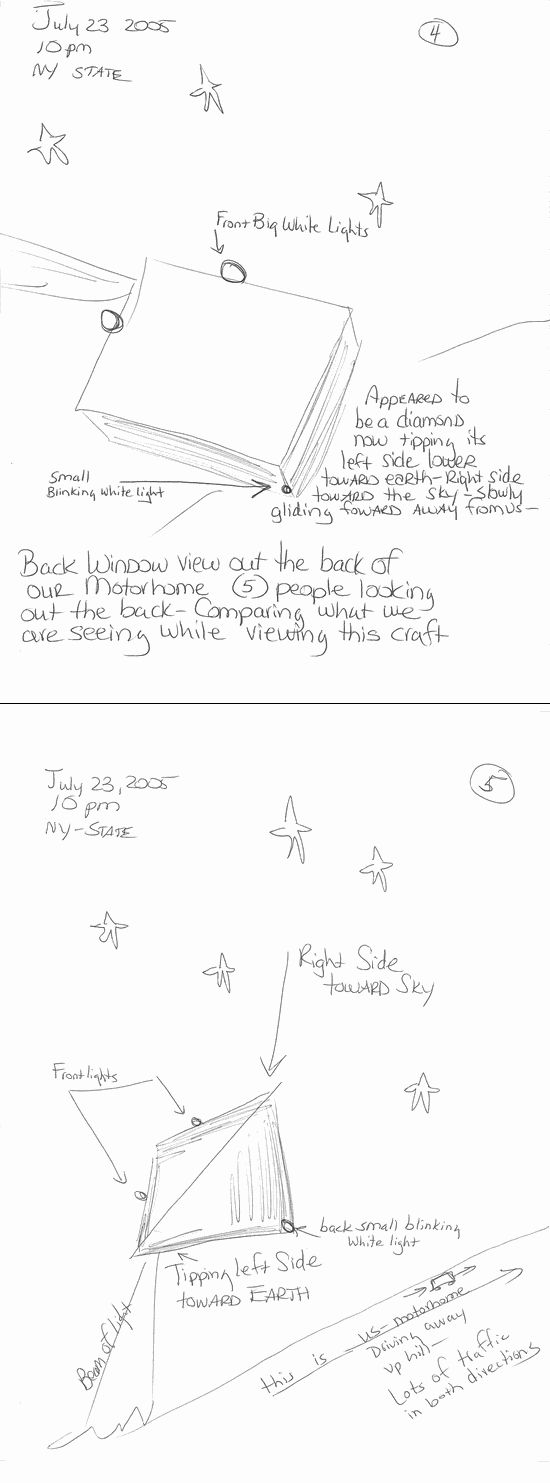 July 23 2005
10pm
NY STATE
4
Front Big White Lights
APPEARED to
be a diamond
now tipping its
left side lower
TOWARD earth-Right side
TOWARD the sky-slowly
gliding TOWARD AWAY from us-
Small
Blinking White light
Back Window view out the back of
OUR Motorhome 5 people looking
out the back- Comparing what we
are seeing while viewing this craft
July 23, 2005
10 pm
NY-STATE
5
Right Side
TOWARD Sky
Front lights
back small blinking
White light
Tipping Left Side
TOWARD EARTH
Beam of light
this is - us-motorhome
Driving away
up hill-
Lots of traffic
in both directions